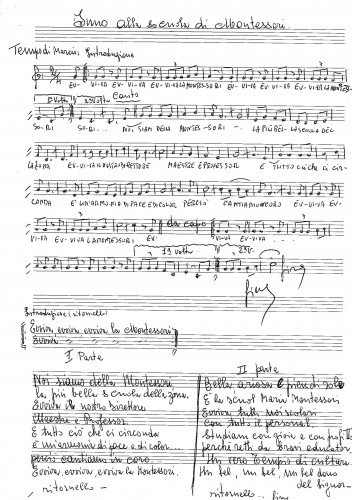 Inno alla scuola di Montessori.
Tempo di Marcia Introduzione
EV- VI-VA EV- VI-VA EV- VI-VA LA MONTES-SORI EV- VI-VA EV- VI-VA EV- VI-VA LA MONTES-
1ª Volta 2ª Volta Canto
SO-RI SO-RI... NOI SIAM DELLA MONTES-SORI - LA PIÙ BEL-LA SCUOLA DEL
LA ZONA EV-VI-VA IL NOSTRO DIRETTORE MAESTRE E PROFESSOR E TUTTO CIÒ CHE CI CIR-
CONDA È UN'ARMONIA DI PACE E DI COLOR PERCIÒ CANTIAMO IN CORO EV-VI-VA EV-
VI-VA EV-VI-VA LA MONTESSORI EV- Da capo VI-VA EV-VIVA
1ª Volta 2ª V. Fine
Fine
Introduzione e ritornello
Evviva, evviva, evviva la Montessori
Evviva " " "
I Parte
Noi siamo della Montessori,
la più bella scuola della zona.
Evviva il nostro Direttore
Maestre e Professor.
E tutto ciò che ci circonda
è un'armonia di pace e di color...
perciò cantiamo in coro.
Evviva, evviva, evviva la Montessori.
ritornello -
II parte
Bella ariosa e pien di sole
È la scuol Maria Montessori
Evviva tutti noi scolari
con tutto il personal.
Studiam con gioia e con
perché retti da bravi educator.
Un vero tempio di cultura.
Un bel, un bel, un bel dono
del Signor.
ritornello - Fine